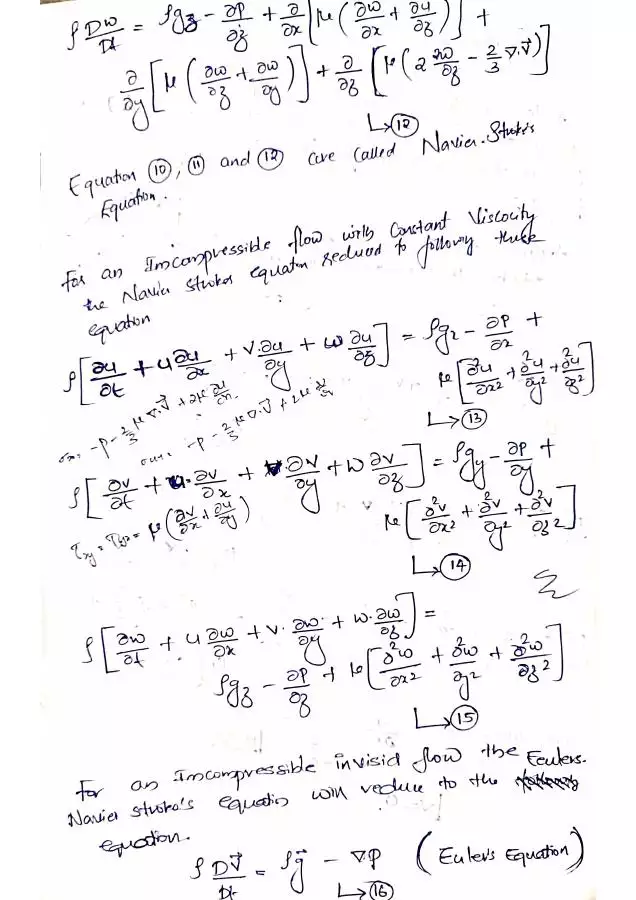 ρ Dw/Dt = ρg_z - ∂P/∂z + ∂/∂x [μ (∂w/∂x + ∂u/∂z)] +
∂/∂y [μ (∂w/∂z + ∂w/∂y)] + ∂/∂z [μ (2 ∂w/∂z - 2/3 ∇.V⃗)]
↳ (12)
Equation (10), (11) and (12) are called Navier. Stroke's
Equation.
For an Imcompressible flow with Constant Viscocity
the Navier Strokes equation reduced to following three
equation
ρ [∂u/∂t + u ∂u/∂x + v. ∂u/∂y + w ∂u/∂z] = ρg_x - ∂P/∂x +
μ [∂²u/∂x² + ∂²u/∂y² + ∂²u/∂z²]
↳ (13)
-P - 2/3 μ ∇.V⃗ + 2μ ∂u/∂x
-P - 2/3 μ ∇.V⃗ + 2μ
ρ [∂v/∂t + u. ∂v/∂x + v. ∂v/∂y + w ∂v/∂z] = ρg_y - ∂P/∂y +
τ_xy = τ_yx = μ (∂v/∂x + ∂u/∂y)
μ [∂²v/∂x² + ∂²v/∂y² + ∂²v/∂z²]
↳ (14)
ρ [∂w/∂t + u ∂w/∂x + v. ∂w/∂y + w. ∂w/∂z] =
ρg_z - ∂P/∂z + μ [∂²w/∂x² + ∂²w/∂y² + ∂²w/∂z²]
↳ (15)
For an Imcompressible invisid flow the Eeulers.
Navier stroke's equation will reduce to the
equation.
ρ DV⃗/Dt = ρg⃗ - ∇p (Euler's Equation)
↳ (16)